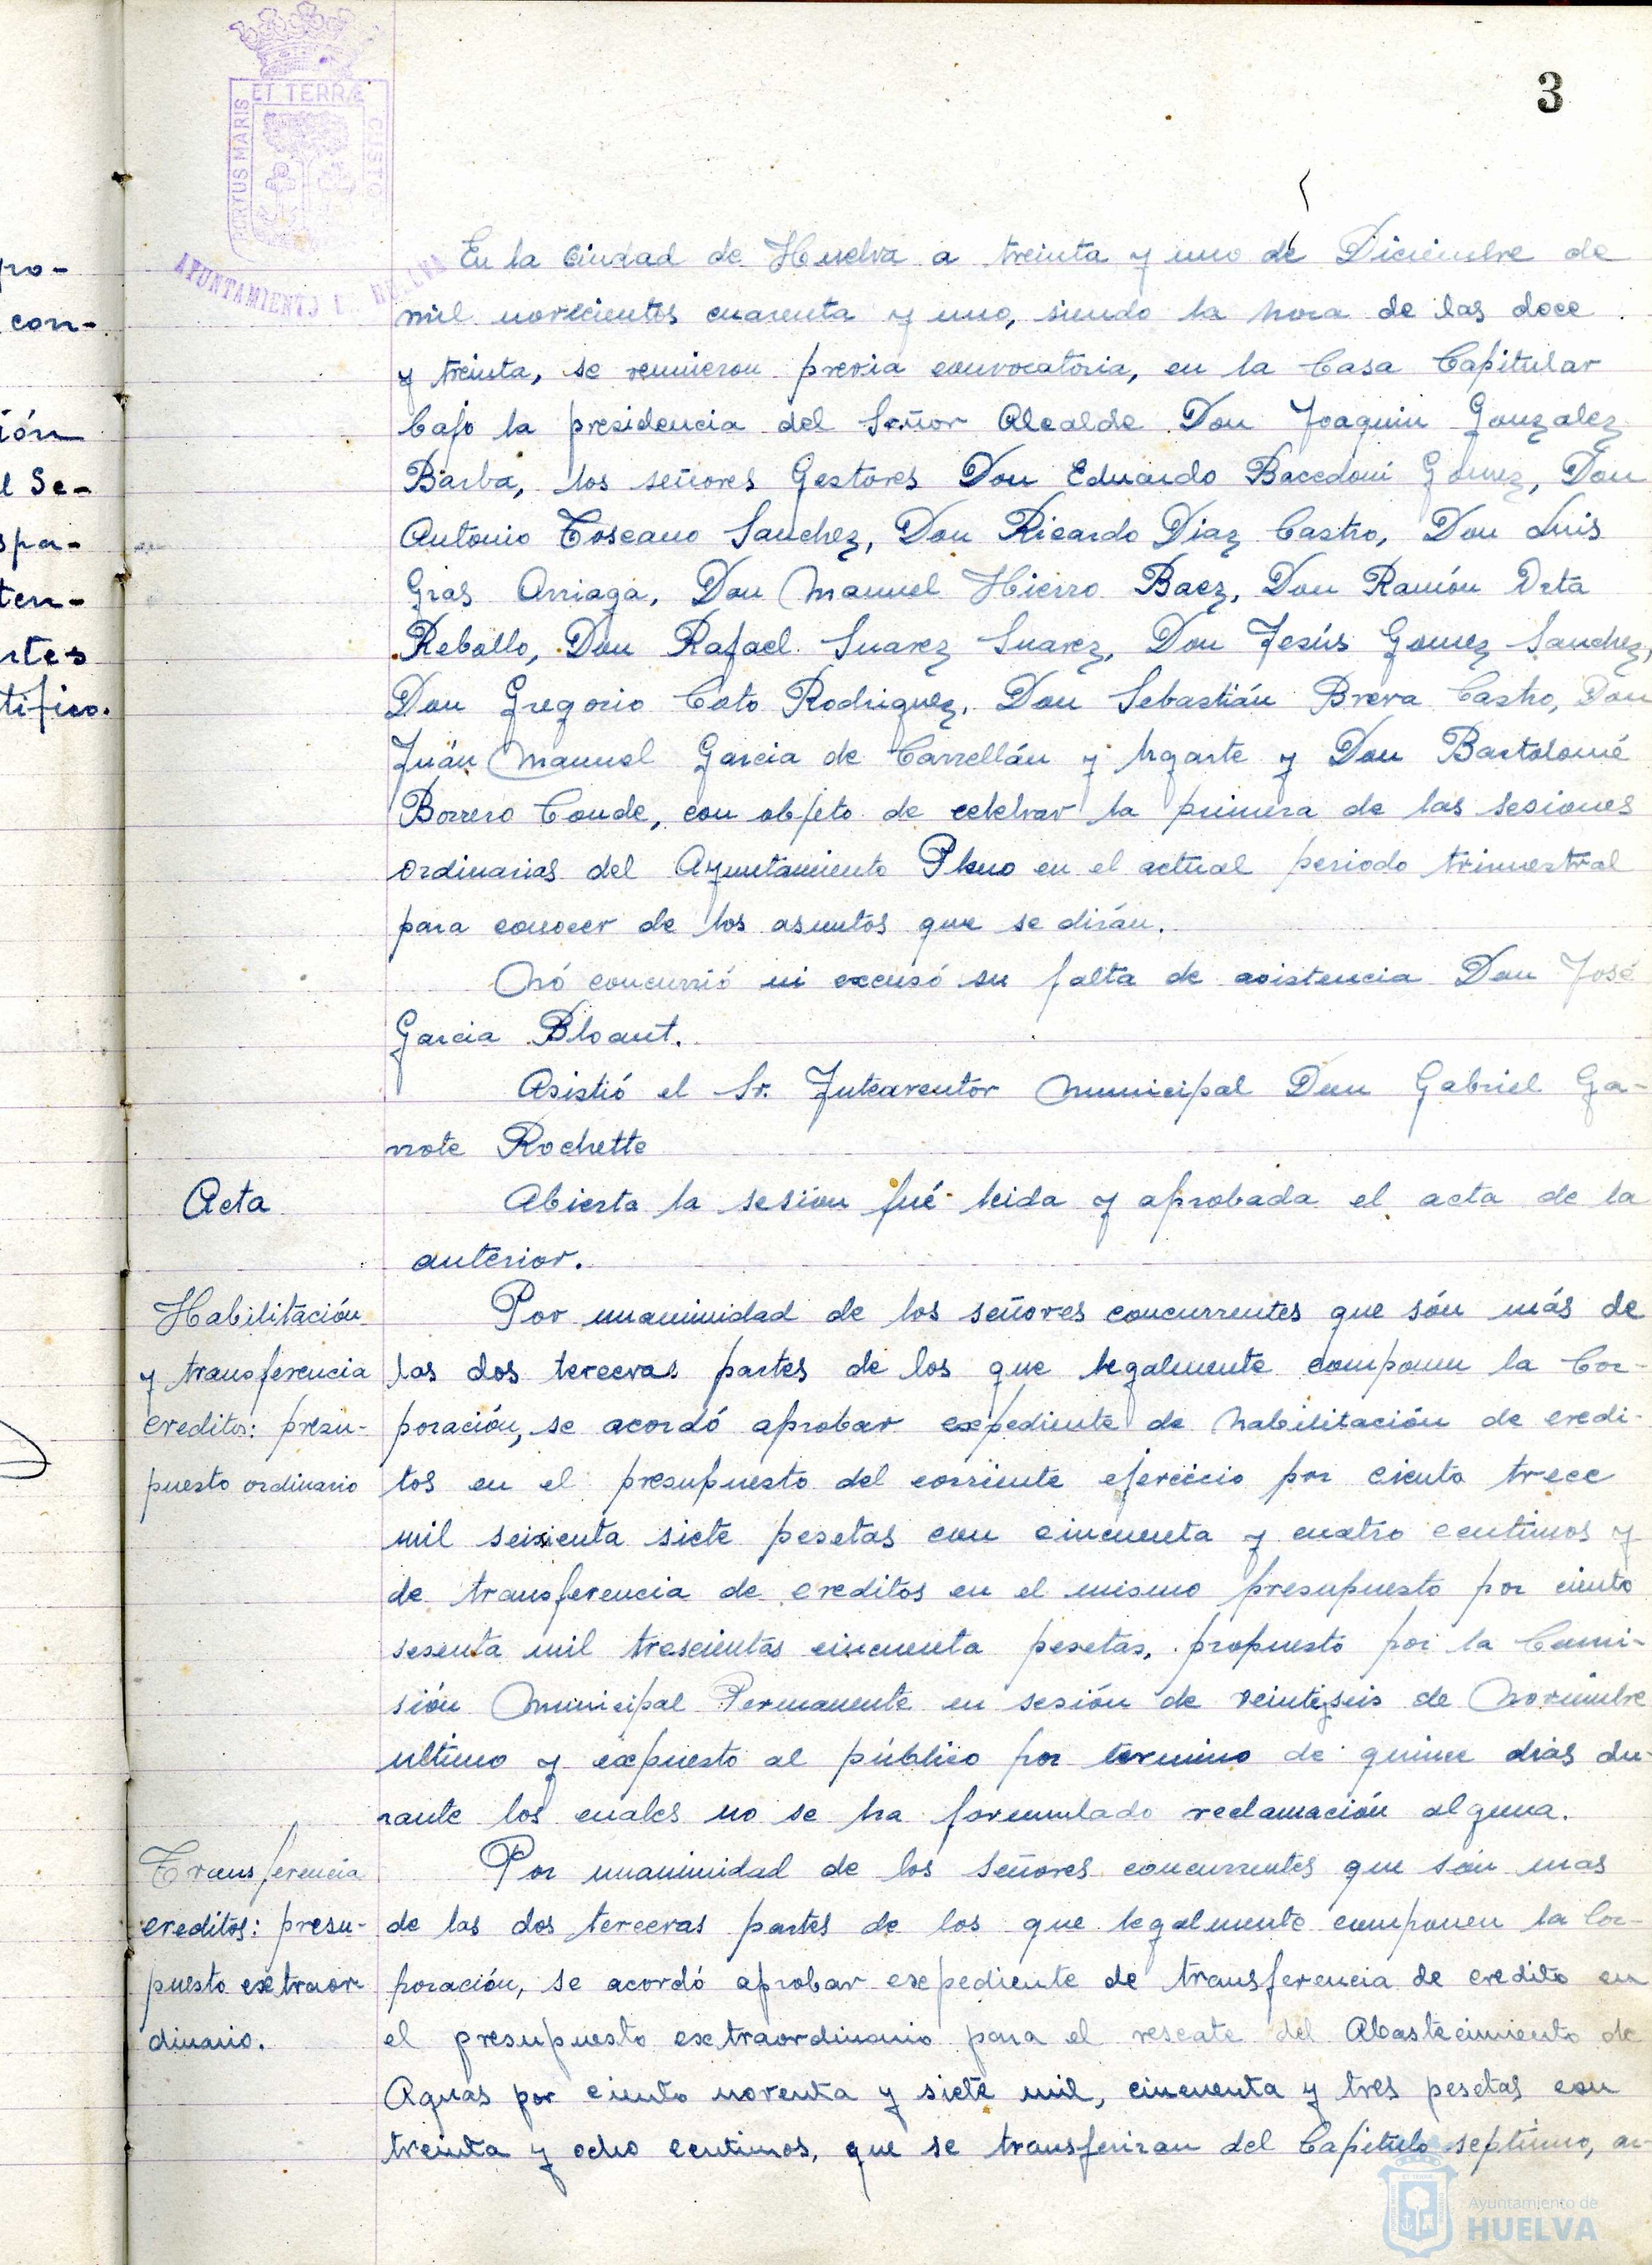 3
PORTUS MARIS
ET TERRÆ
CUSTO
AYUNTAMIENTO
pro-
con-
ión
l Se-
spa-
ten-
rtes
tifico.
En la ciudad de Huelva a treinta y uno de Diciembre de
mil novecientos cuarenta y uno, siendo la hora de las doce
y treinta, se reunieron previa convocatoria, en la Casa Capitular
bajo la presidencia del Señor Alcalde Don Joaquin Gonzalez
Barba, los señores Gestores Don Eduardo Bacedoni Gomez, Don
Antonio Toscano Sanchez, Don Ricardo Diaz Castro, Don Luis
Gras Arriaga, Don Manuel Hierro Baez, Don Ramón Orta
Rebollo, Don Rafael Suarez Suarez, Don Jesús Gomez Sanchez,
Don Gregorio Coto Rodriguez, Don Sebastián Breva Castro, Don
Juán Manuel Garcia de Carrellán y Ugarte y Don Bartolomé
Borrero Conde, con objeto de celebrar la primera de las sesiones
ordinarias del Ayuntamiento Pleno en el actual periodo trimestral
para conocer de los asuntos que se dirán.
Nó concurrió ni excusó su falta de asistencia Don José
Garcia Bloant.
Asistió el Sr. Interventór Municipal Don Gabriel Ga-
rrote Rochette
Acta
Abierta la sesión fué leida y aprobada el acta de la
anterior.
Habilitación
y transferencia
creditos: presu-
puesto ordinario
Por unanimidad de los señores concurrentes que són más de
las dos terceras partes de los que legalmente componen la Cor-
poración, se acordó aprobar expediente de habilitación de credi-
tos en el presupuesto del corriente ejercicio por ciento trece
mil seisienta siete pesetas con cincuenta y cuatro centimos y
de transferencia de creditos en el mismo presupuesto por ciento
sesenta mil trescientas cincuenta pesetas, propuesto por la Comi-
sión Municipal Permanente en sesión de veintiseis de Noviembre
ultimo y expuesto al público por termino de quince dias du-
rante los cuales no se ha formulado reclamación alguna.
Transferencia
creditos: presu-
puesto extraor
dinario.
Por unanimidad de los señores concurrentes que són mas
de las dos terceras partes de los que legalmente componen la Cor-
poración, se acordó aprobar expediente de transferencia de credito en
el presupuesto extraordinario para el rescate del Abastecimiento de
Aguas por ciento noventa y siete mil, cincuenta y tres pesetas con
treinta y ocho centimos, que se transferiran del Capitulo septimo, ar-
Ayuntamiento de
HUELVA